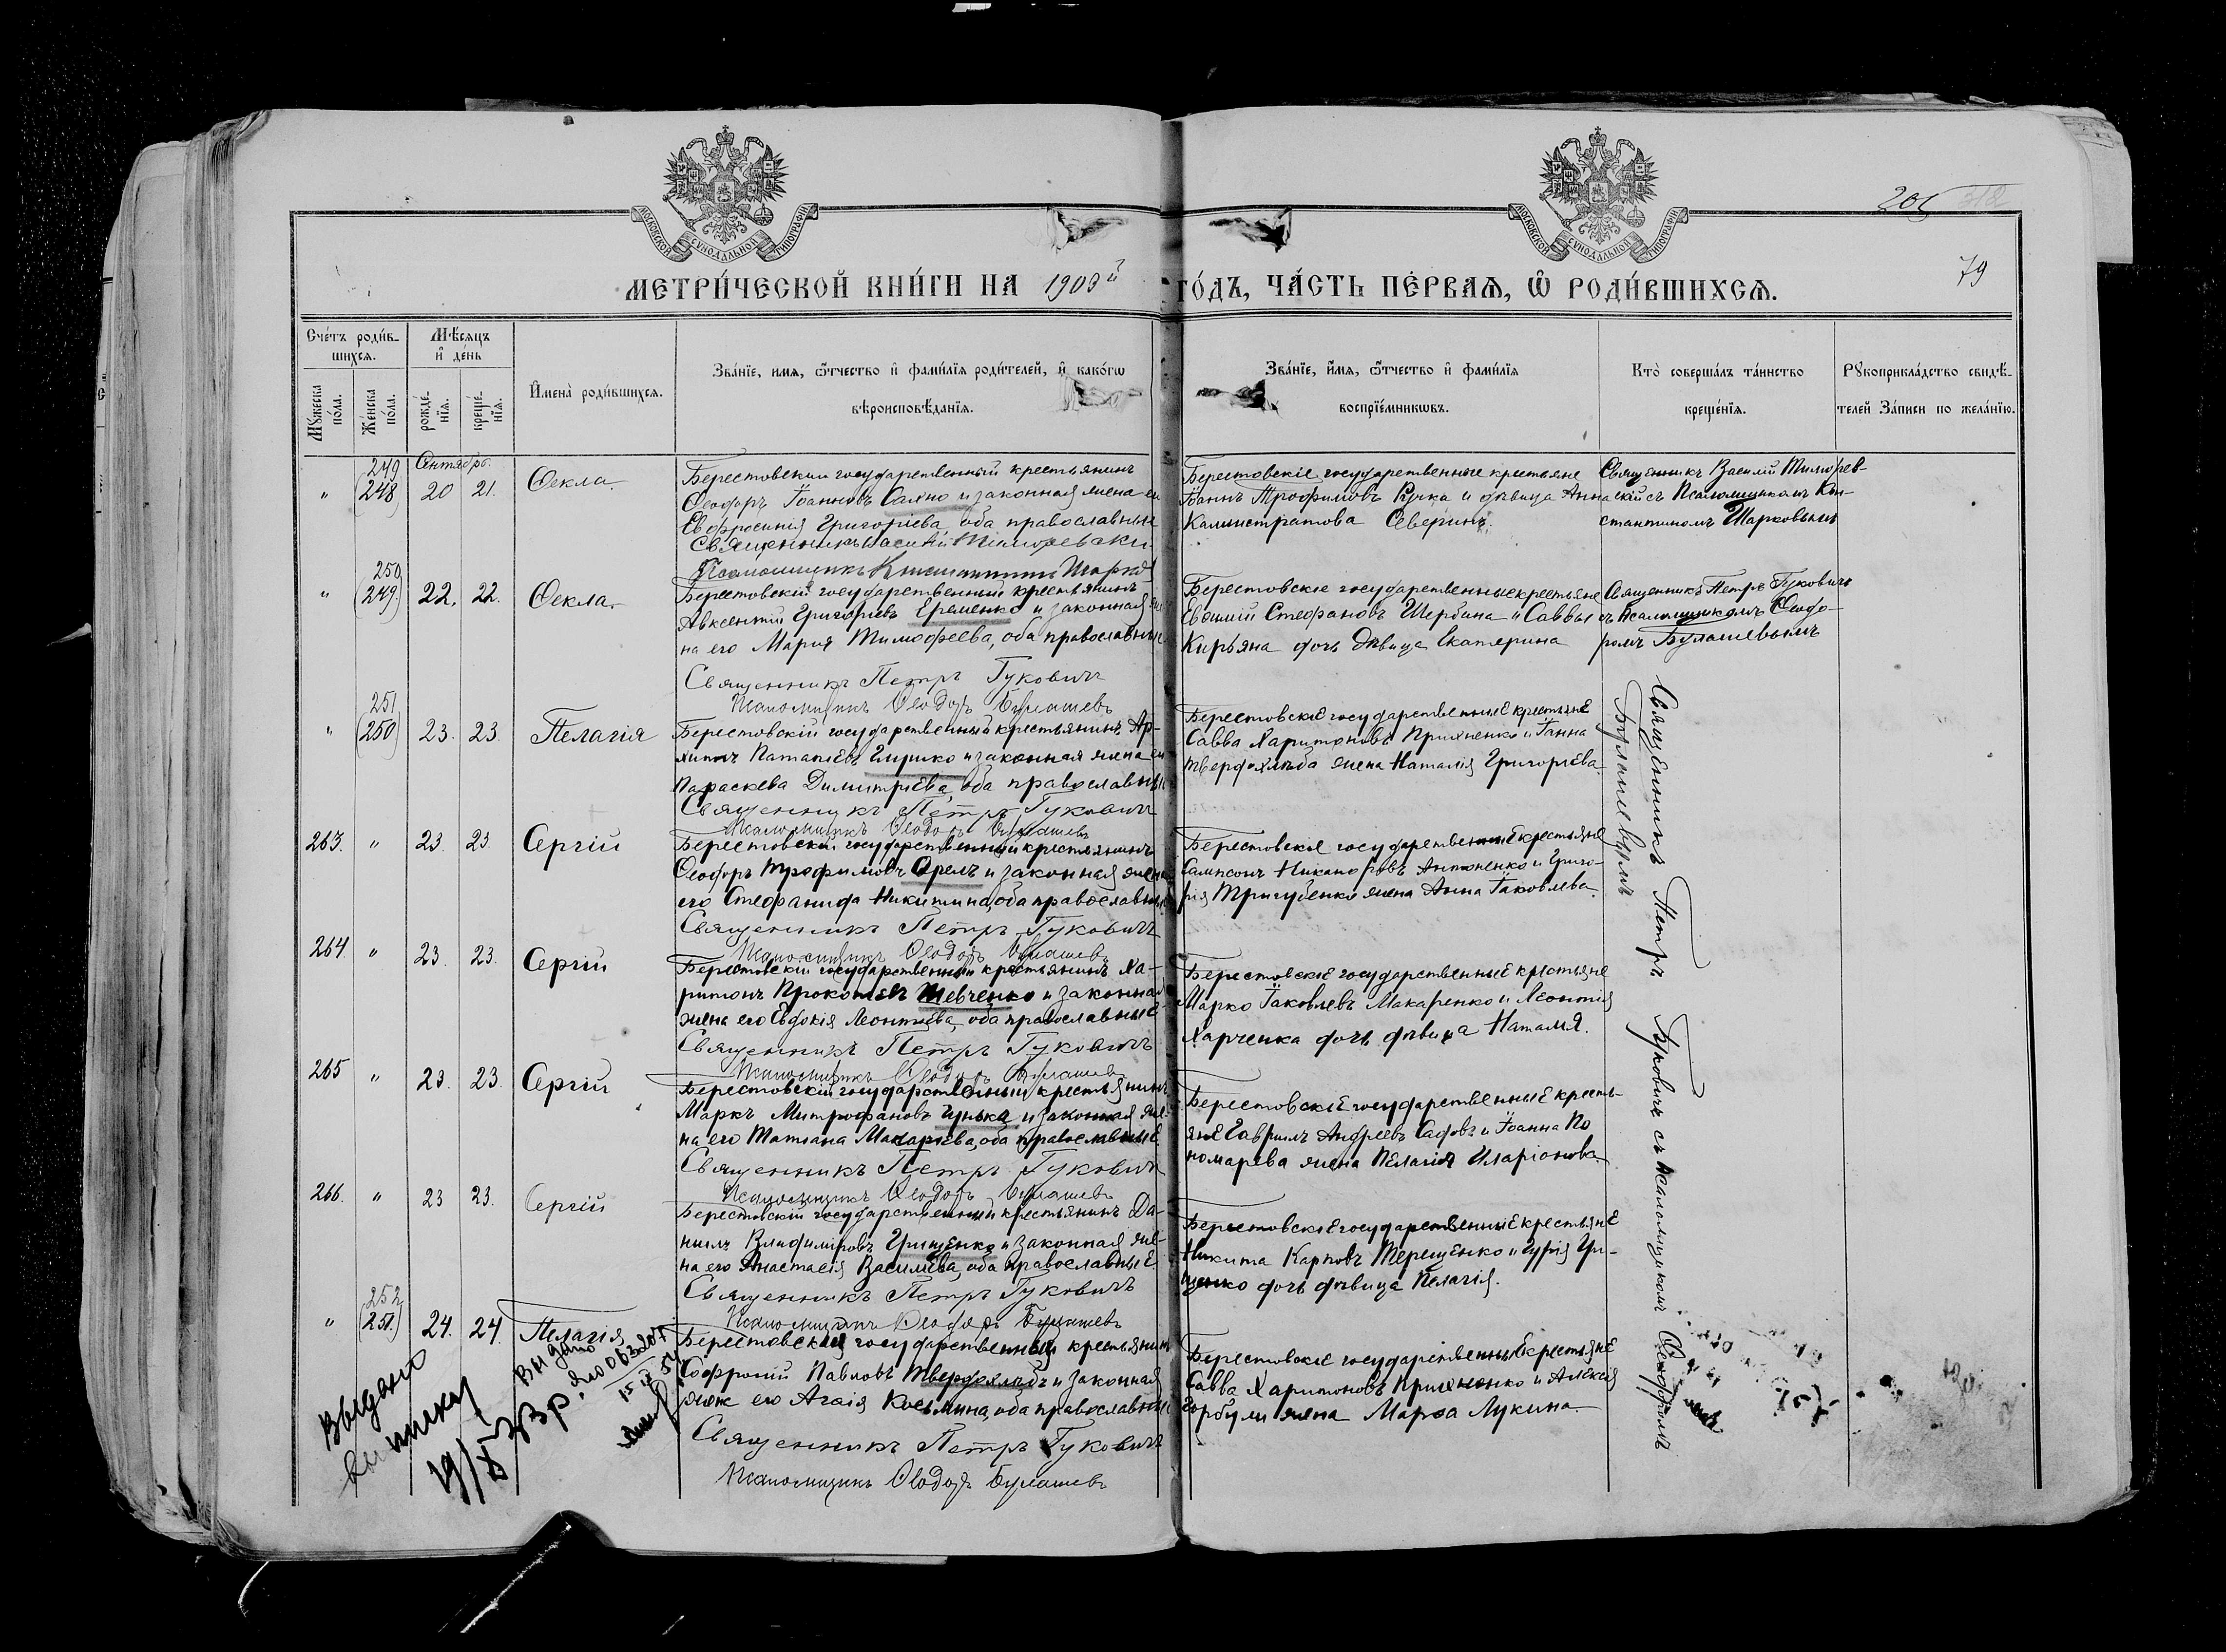 205
79
МОСКОВСКОЙ СѴНОДАЛЬНОЙ ТИПОГРАФІИ
МОСКОВСКОЙ СѴНОДАЛЬНОЙ ТИПОГРАФІИ
МЕТРИ́ЧЕСКОЙ КНИ́ГИ НА 1903й ГО́ДЪ, ЧА́СТЬ ПЕ́РВАЯ, Ѽ РОДИ́ВШИХСЯ.
Сче́тъ роди́в-
шихся.
Мѣ́сяцъ
и҆ де́нь
Мꙋ́жеска по́ла.
Же́нска по́ла.
рожде́-
нїѧ.
креще́-
нїѧ.
И҆мена̀ роди́вшихся.
Зва́нїе, имя, ѻ҆́тчество и҆ фами́лїя роди́телей, и҆ како́гѡ
вѣроисповѣ́данїя.
Зва́нїе, и҆́мя, ѻ҆́тчество и҆ фами́лїя
воспрїе́мникѡвъ.
Кто̀ соверша́лъ та́инство
креще́нїя.
Рꙋкоприкла́дство свидѣ́-
телей За́писи по жела́нїю.
Сентябрь.
" 249 (248) 20 21. Ѳекла.
Берестовский государственный крестьянинъ
Ѳеодоръ Іоанновъ Саяно и законная жена его
Евфросинія Григоріева, оба православные
Священникъ Василій Тиморевскій
Псаломщикъ Константинъ Шарковъ
Берестовскіе государственные крестьяне
Іоаннъ Трофимовъ Рука и дѣвица Анна
Каллистратова Северинъ.
Священникъ Василій Тиморев-
скій съ Псаломщикомъ Кон-
стантиномъ Шарковымъ
" 250 (249) 22. 22. Ѳекла.
Берестовскій государственный крестьянинъ
Авксентій Григоріевъ Еременко и законная же-
на его Марія Тимофеева, оба православные
Священникъ Петръ Гуковичъ
Псаломщикъ Ѳеодоръ Булашевъ
Берестовскіе государственные крестьяне
Евѳимій Стефановъ Щербина и Саввы
Кирьяна дочь дѣвица Екатерина
Священникъ Петръ Гуковичъ
съ Псаломщикомъ Ѳеодо-
ромъ Булашевымъ
" 251 (250) 23. 23. Пелагія
Берестовскій государственный крестьянинъ Ар-
хиппъ Патапіевъ Глушко и законная жена его
Параскева Димитріева, оба православные
Священникъ Петръ Гуковичъ
Псаломщикъ Ѳеодоръ Булашевъ
Берестовскіе государственные крестьяне
Савва Харитоновъ Прихненко и Іоанна
Твердохлѣба жена Наталія Григоріева.
Священникъ Петръ Гуковичъ съ псаломщикомъ Ѳеодоромъ
Булашевымъ
263. " 23. 23. Сергій
Берестовскій государственный крестьянинъ
Ѳеодоръ Трофимовъ Орелъ и законная жена
его Стефанида Никитина, оба православные
Священникъ Петръ Гуковичъ
Псаломщикъ Ѳеодоръ Булашевъ
Берестовскіе государственные крестьяне
Сампсонъ Никаноровъ Антоненко и Григо-
рія Тригубенко жена Анна Іаковлева.
264. " 23. 23. Сергій
Берестовскій государственный крестьянинъ Ха-
ритонъ Прокопіевъ Шевченко и законная
жена его Евдокія Леонтіева, оба православные
Священникъ Петръ Гуковичъ
Псаломщикъ Ѳеодоръ Булашевъ
Берестовскіе государственные крестьяне
Марко Іаковлевъ Макаренко и Леонтія
Харченка дочь дѣвица Наталія.
265 " 23. 23. Сергій
Берестовскій государственный крестьянинъ
Маркъ Митрофановъ Гунька и законная же-
на его Татіана Макаріева, оба православные
Священникъ Петръ Гуковичъ
Псаломщикъ Ѳеодоръ Булашевъ
Берестовскіе государственные кресть-
яне Гавріилъ Андреевъ Садовъ и Іоанна По
номарева жена Пелагія Иларіонова.
266. " 23 23. Сергій
Берестовскій государственный крестьянинъ Да-
ніилъ Владиміровъ Грищенко и законная же-
на его Анастасія Васильева, оба православные
Священникъ Петръ Гуковичъ
Псаломщикъ Ѳеодоръ Булашевъ
Берестовскіе государственные крестьяне
Никита Карповъ Терещенко и Гурія Гри-
щенко дочь дѣвица Пелагія.
" 252 (251.) 24. 24. Пелагія
Берестовскій государственный крестьянинъ
Софроній Павловъ Твердохлѣбъ и законная
жена его Агаѳія Косьмина, оба православные
Священникъ Петръ Гуковичъ
Псаломщикъ Ѳеодоръ Булашевъ
Берестовскіе государственные крестьяне
Савва Харитоновъ Прихненко и Алексія
Горбули жена Марѳа Лукина.
Выдано
выписка
19/X 33 р.
Выдано